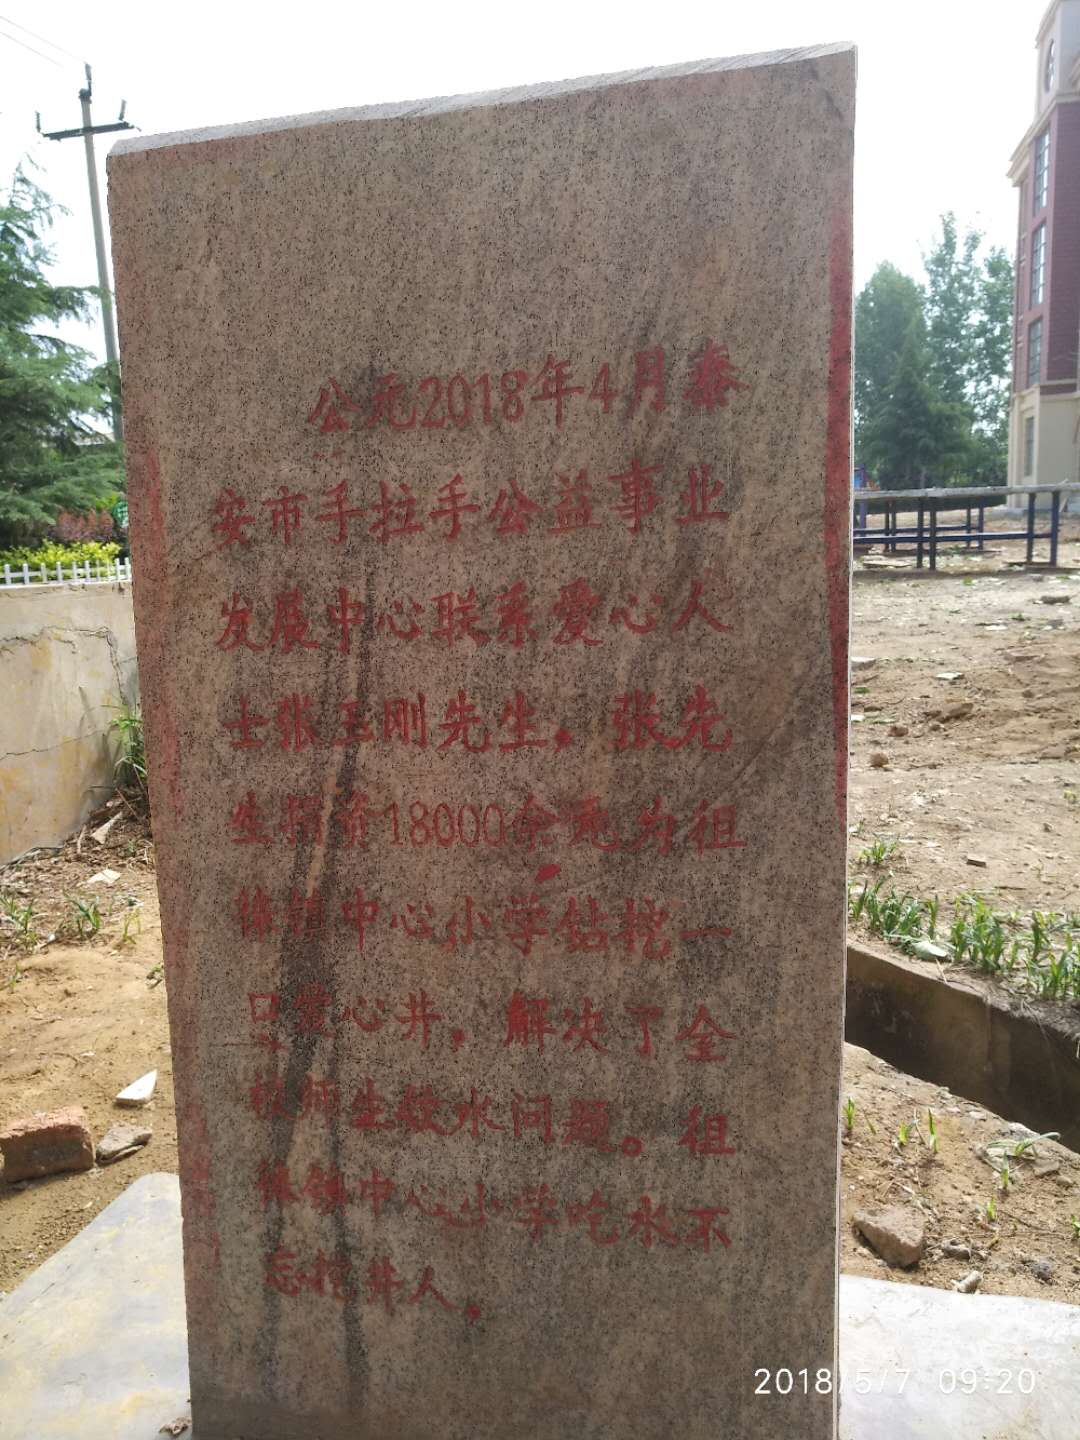 公元2018年4月泰
安市手拉手公益事业
发展中心联系爱心人
士张玉刚先生，张先
生捐资18000余元为徂
徕镇中心小学钻挖一
口爱心井，解决了全
校师生饮水问题。徂
徕镇中心小学吃水不
忘挖井人。
2018/5/7 09:20